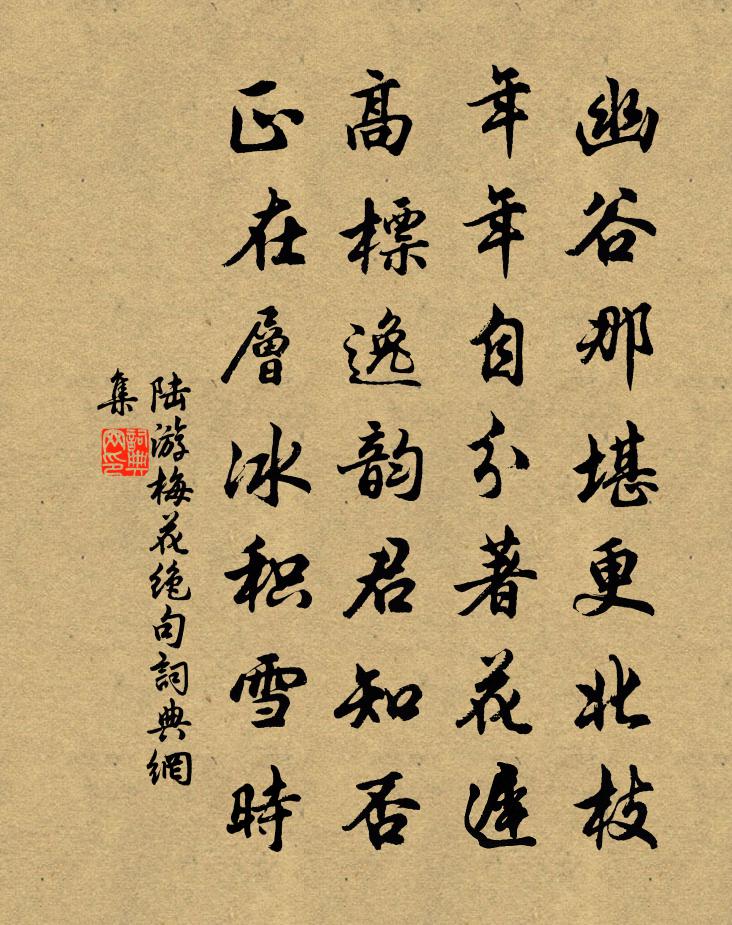 幽谷那堪更北枝
年年自分著花遲
高標逸韵君知否
正在層冰积雪時
陆游梅花绝句詞典網
集
詞典
网印